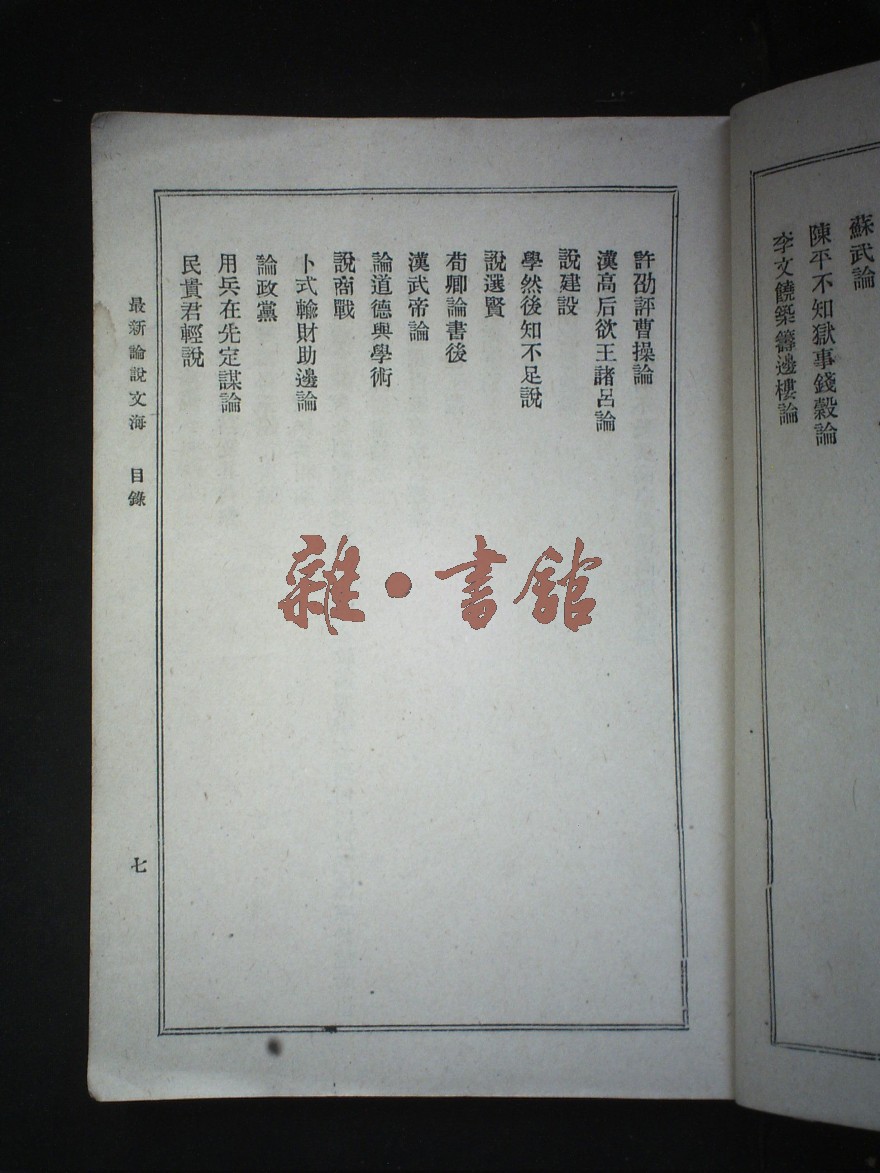 蘇武論
陳平不知獄事錢穀論
李文饒築籌邊樓論
許劭評曹操論
漢高后欲王諸呂論
說建設
學然後知不足說
說選賢
荀卿論書後
漢武帝論
論道德與學術
說商戰
卜式輸財助邊論
論政黨
用兵在先定謀論
民貴君輕說
最新論說文海 目錄
七
雜·書館